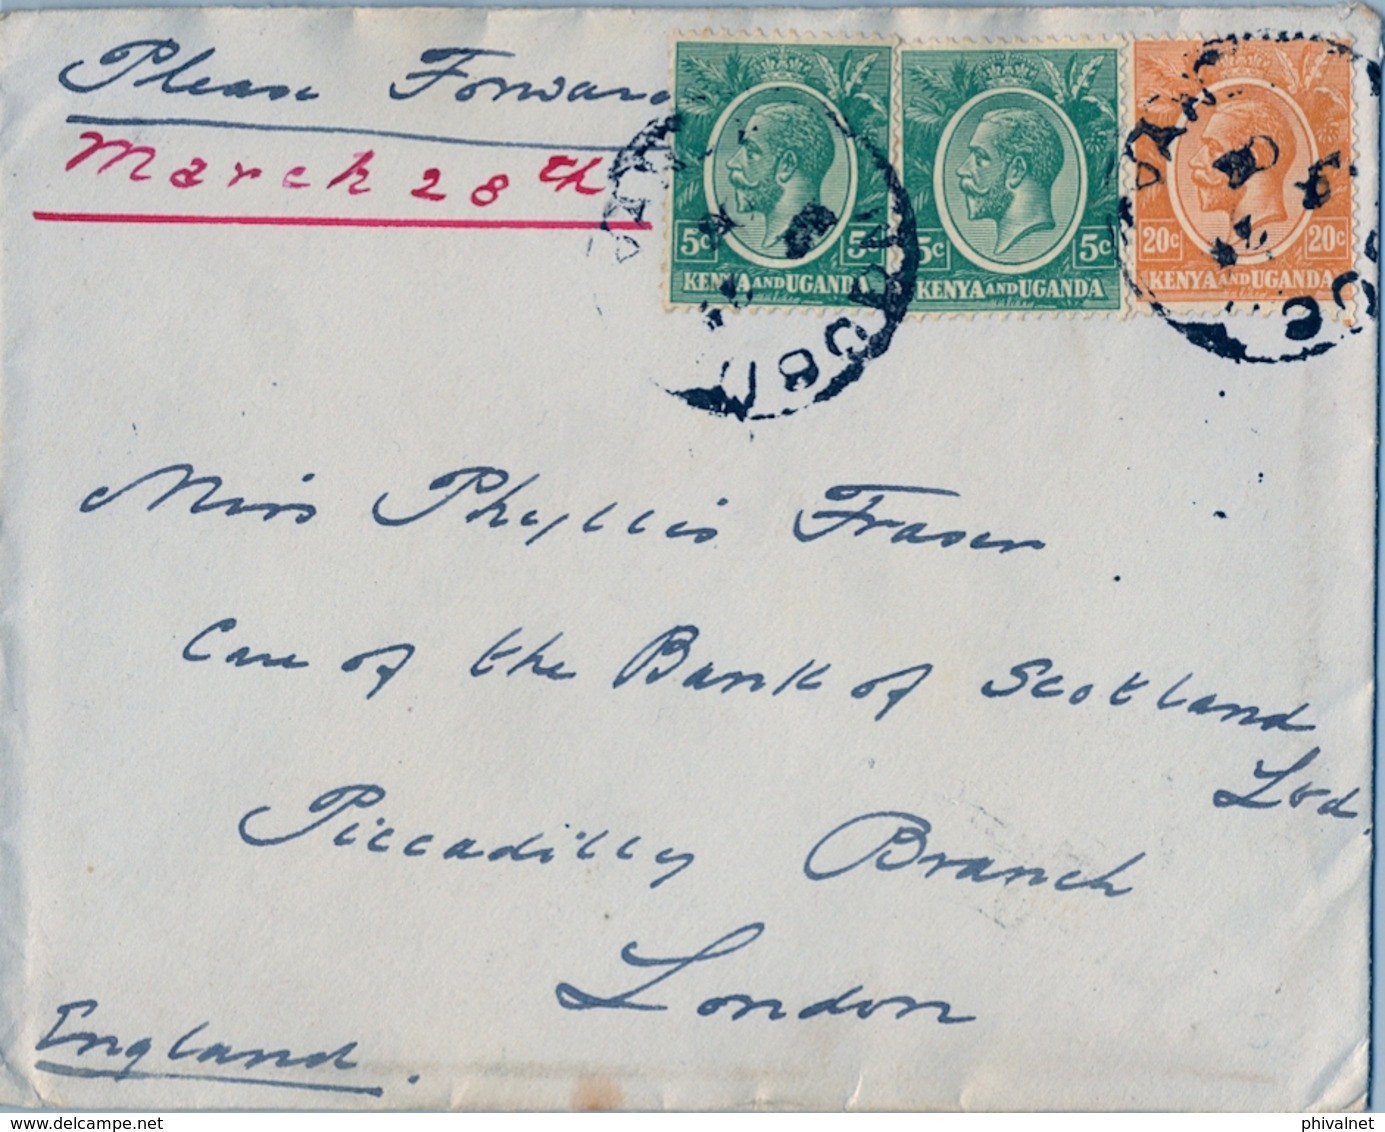 Please Forward
March 28th
5c 5c
KENYA AND UGANDA
5c 5c
KENYA AND UGANDA
20c 20c
KENYA AND UGANDA
Miss Phyllis Fraser
Care of the Bank of Scotland
Ltd.
Piccadilly Branch
London
England.
phivalnet